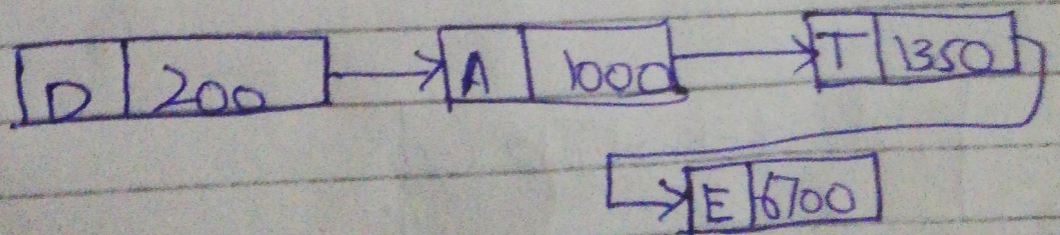 D 200 A 1000 T 1350
E 6700